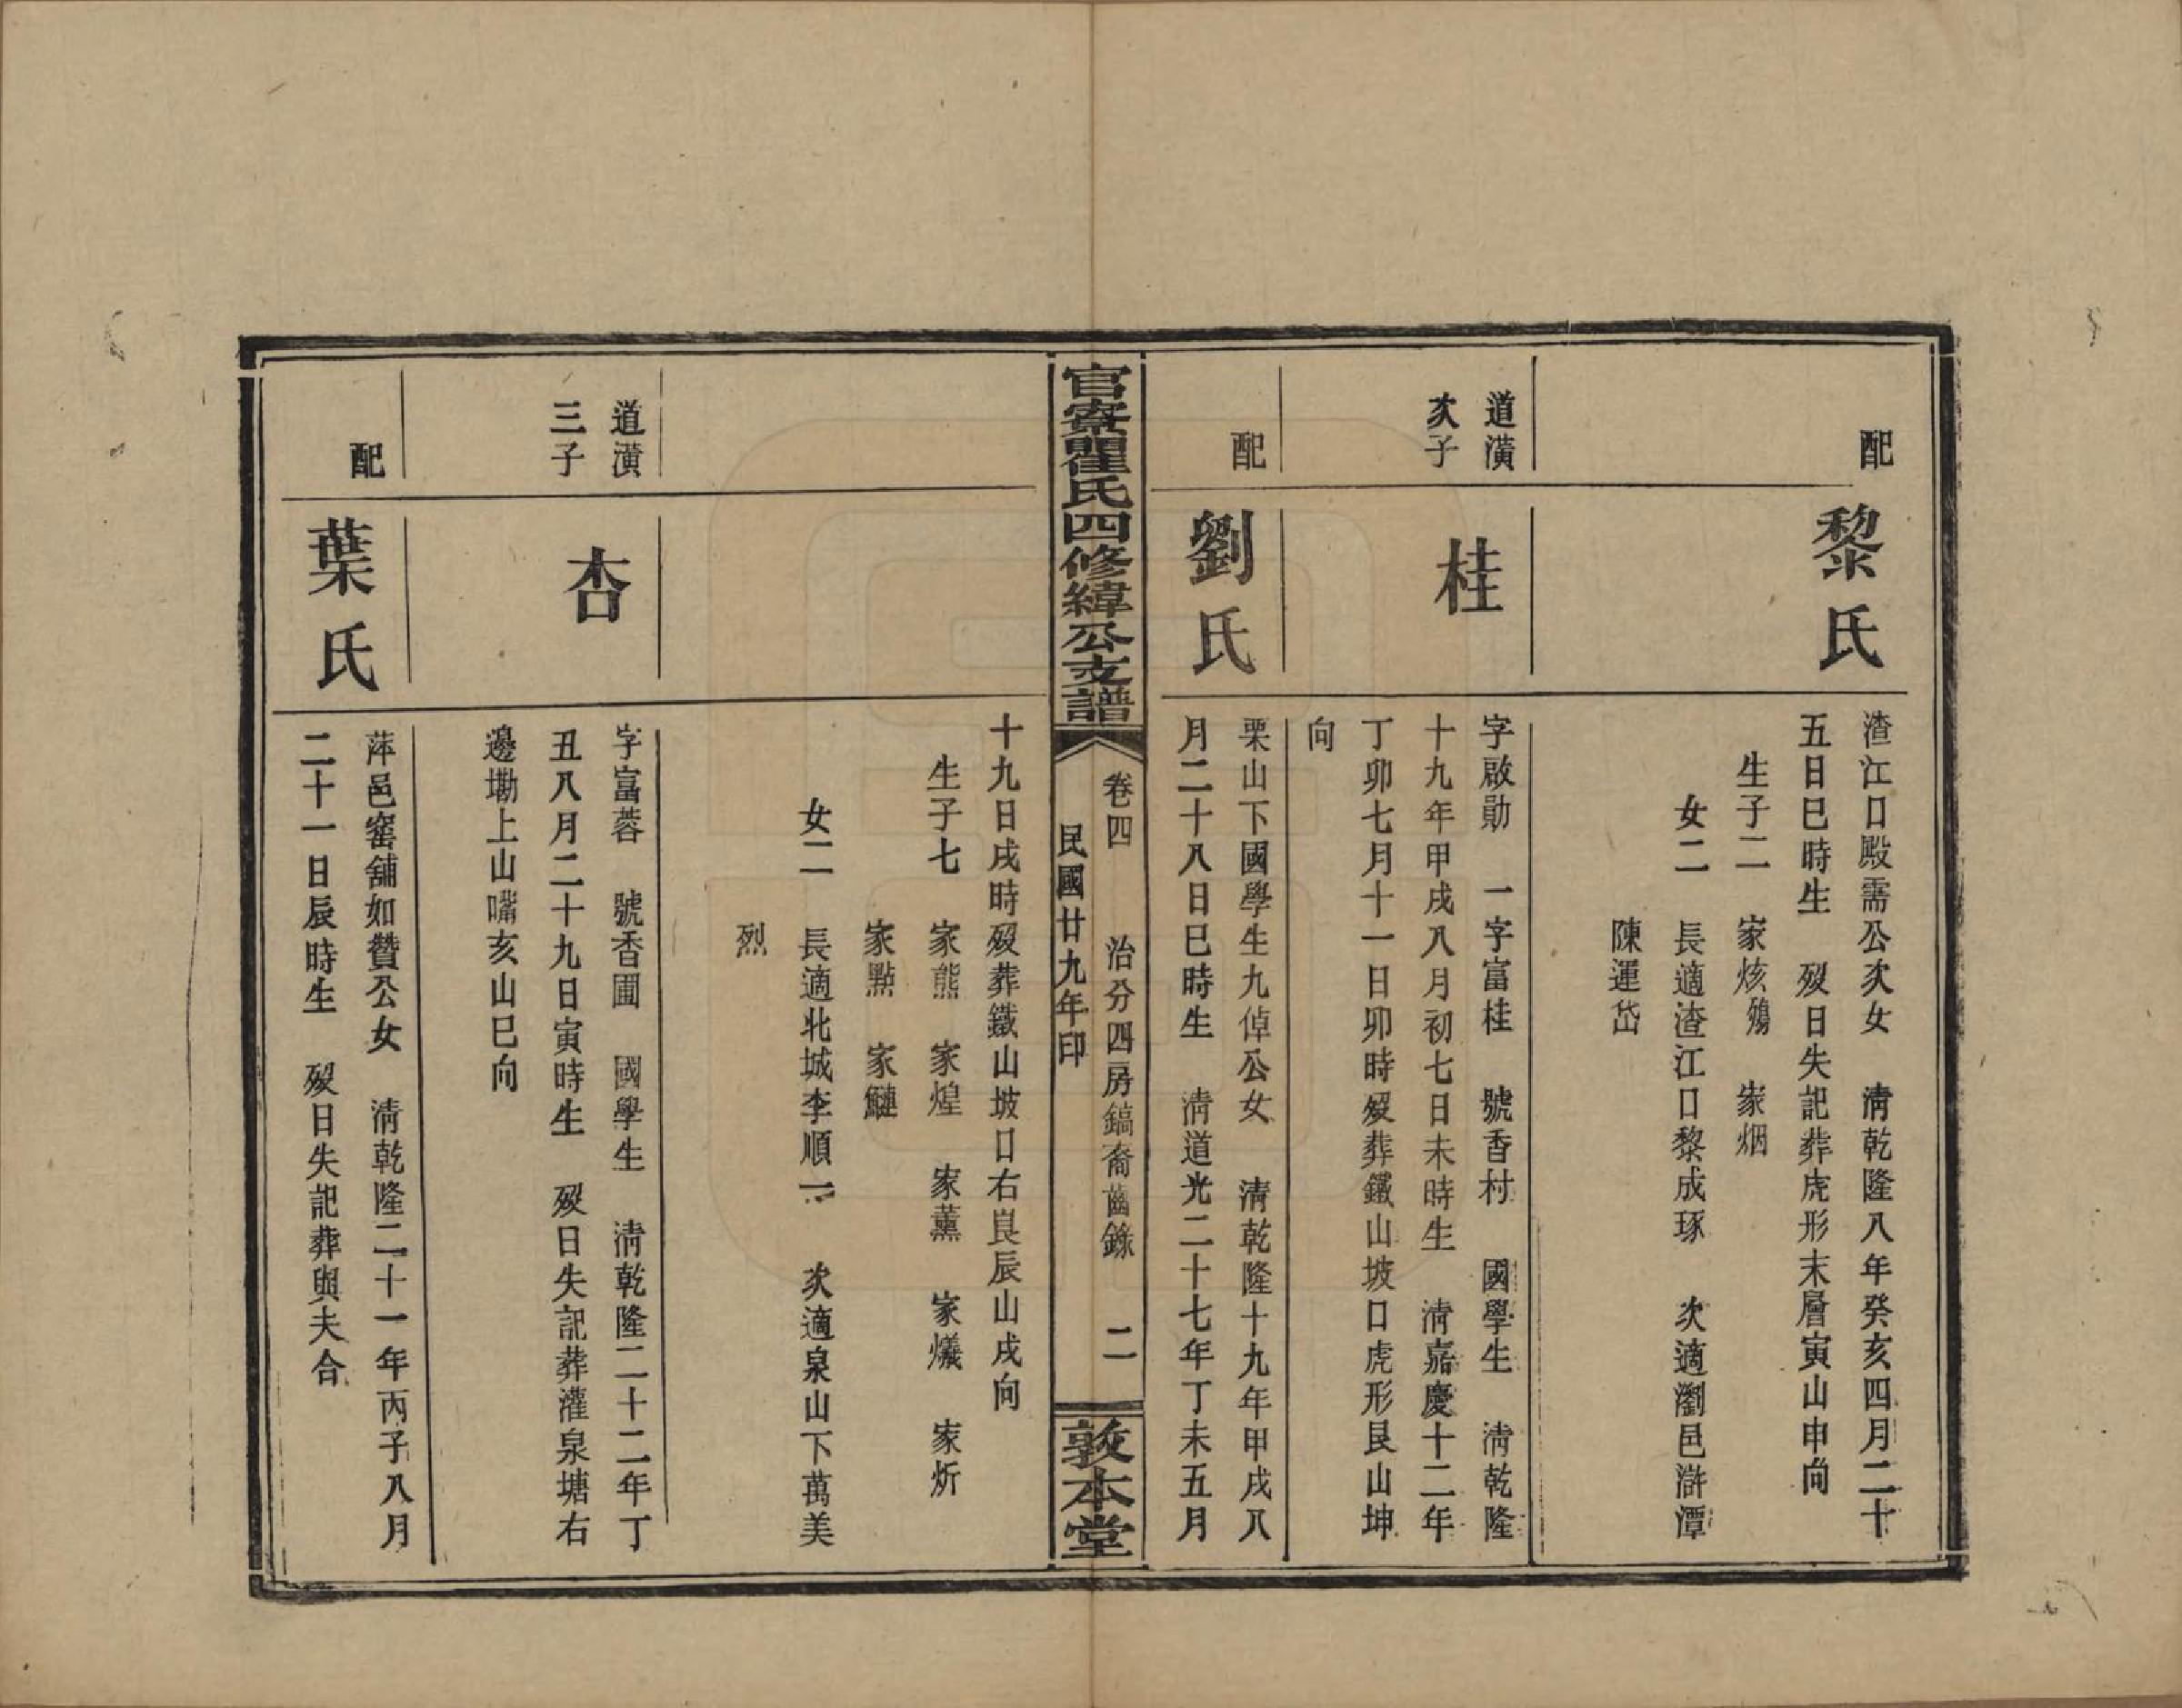 配
黎氏
渣江口殿需公次女　清乾隆八年癸亥四月二十
五日巳時生　歿日失記葬虎形末層寅山申向
生子二　家烗殤　家烟
女二　長適渣江口黎成琢　次適瀏邑滸潭
陳運岱
道潢
次子
桂
字啟勛　一字富桂　號香村　國學生　清乾隆
十九年甲戌八月初七日未時生　清嘉慶十二年
丁卯七月十一日卯時歿葬鐵山坡口虎形艮山坤
向
配
劉氏
栗山下國學生九倬公女　清乾隆十九年甲戌八
月二十八日巳時生　清道光二十七年丁未五月
官寮瞿氏四修緯公支譜
卷四　治分四房鎬裔齒錄　二
民國廿九年印
敦本堂
十九日戌時歿葬鐵山坡口右艮辰山戌向
生子七　家熊　家煌　家薰　家爔　家炘
家點　家鰱
女二　長適北城李順一　次適泉山下萬美
烈
道潢
三子
杏
字富蓉　號香圃　國學生　清乾隆二十二年丁
丑八月二十九日寅時生　歿日失記葬灌泉塘右
邊塝上山嘴亥山巳向
配
葉氏
萍邑窰舖如贊公女　清乾隆二十一年丙子八月
二十一日辰時生　歿日失記葬與夫合